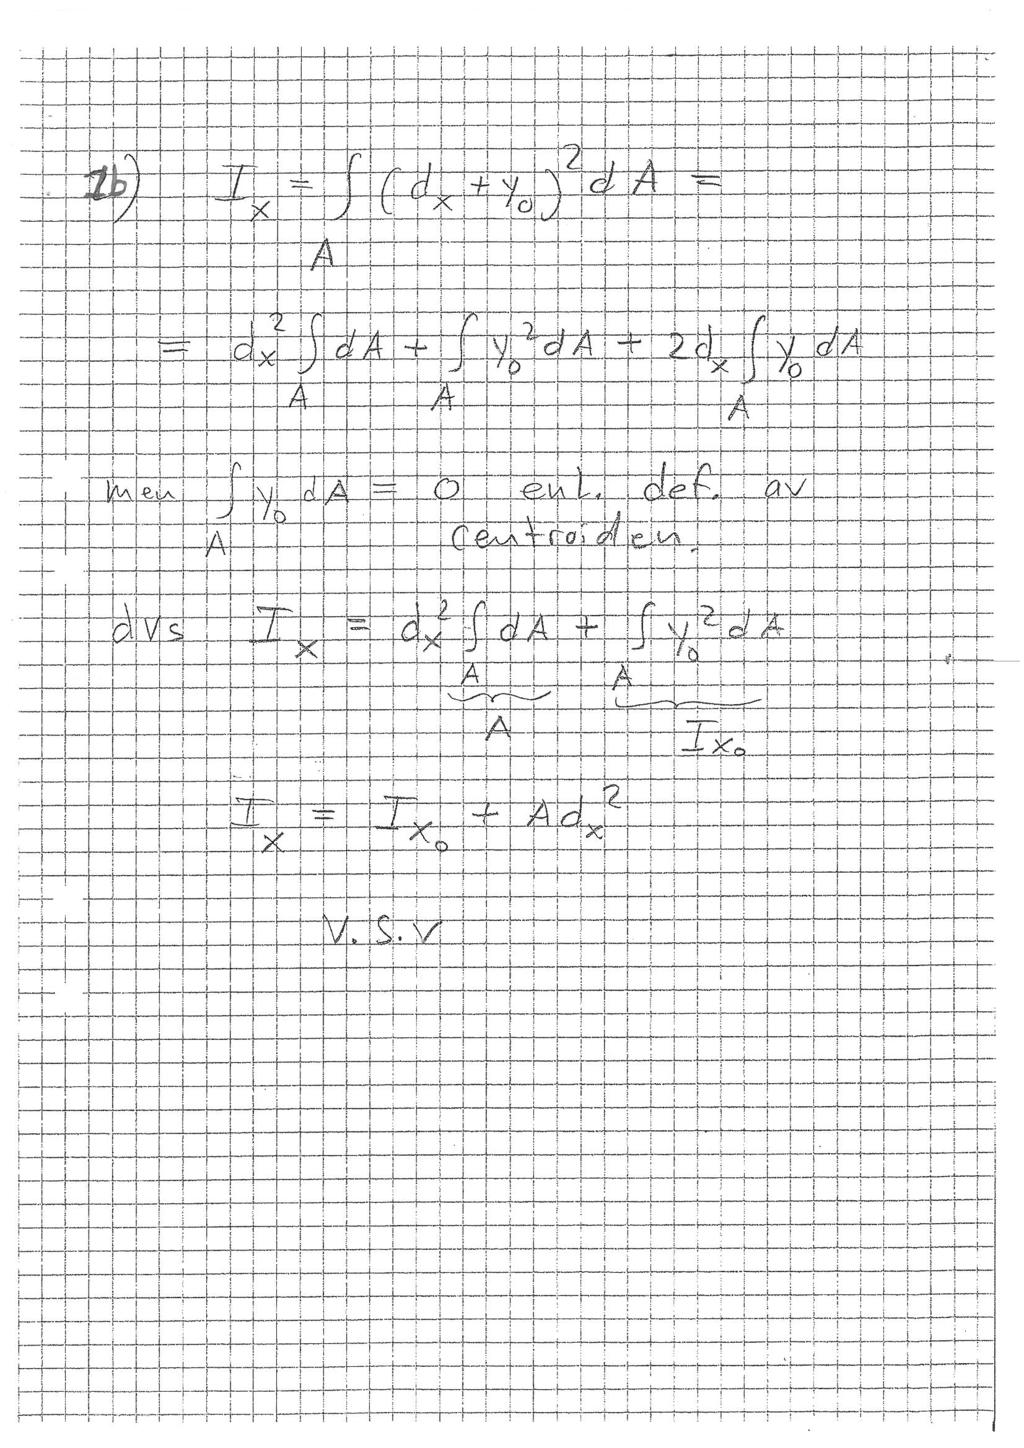 1b) I_x = ∫_A (d_x + y_0)^2 dA =
= d_x^2 ∫_A dA + ∫_A y_0^2 dA + 2d_x ∫_A y_0 dA
men ∫_A y_0 dA = 0 enl. def. av
centroiden.
dvs I_x = d_x^2 ∫_A dA + ∫_A y_0^2 dA
A I_{x_0}
I_x = I_{x_0} + A d_x^2
V.S.V